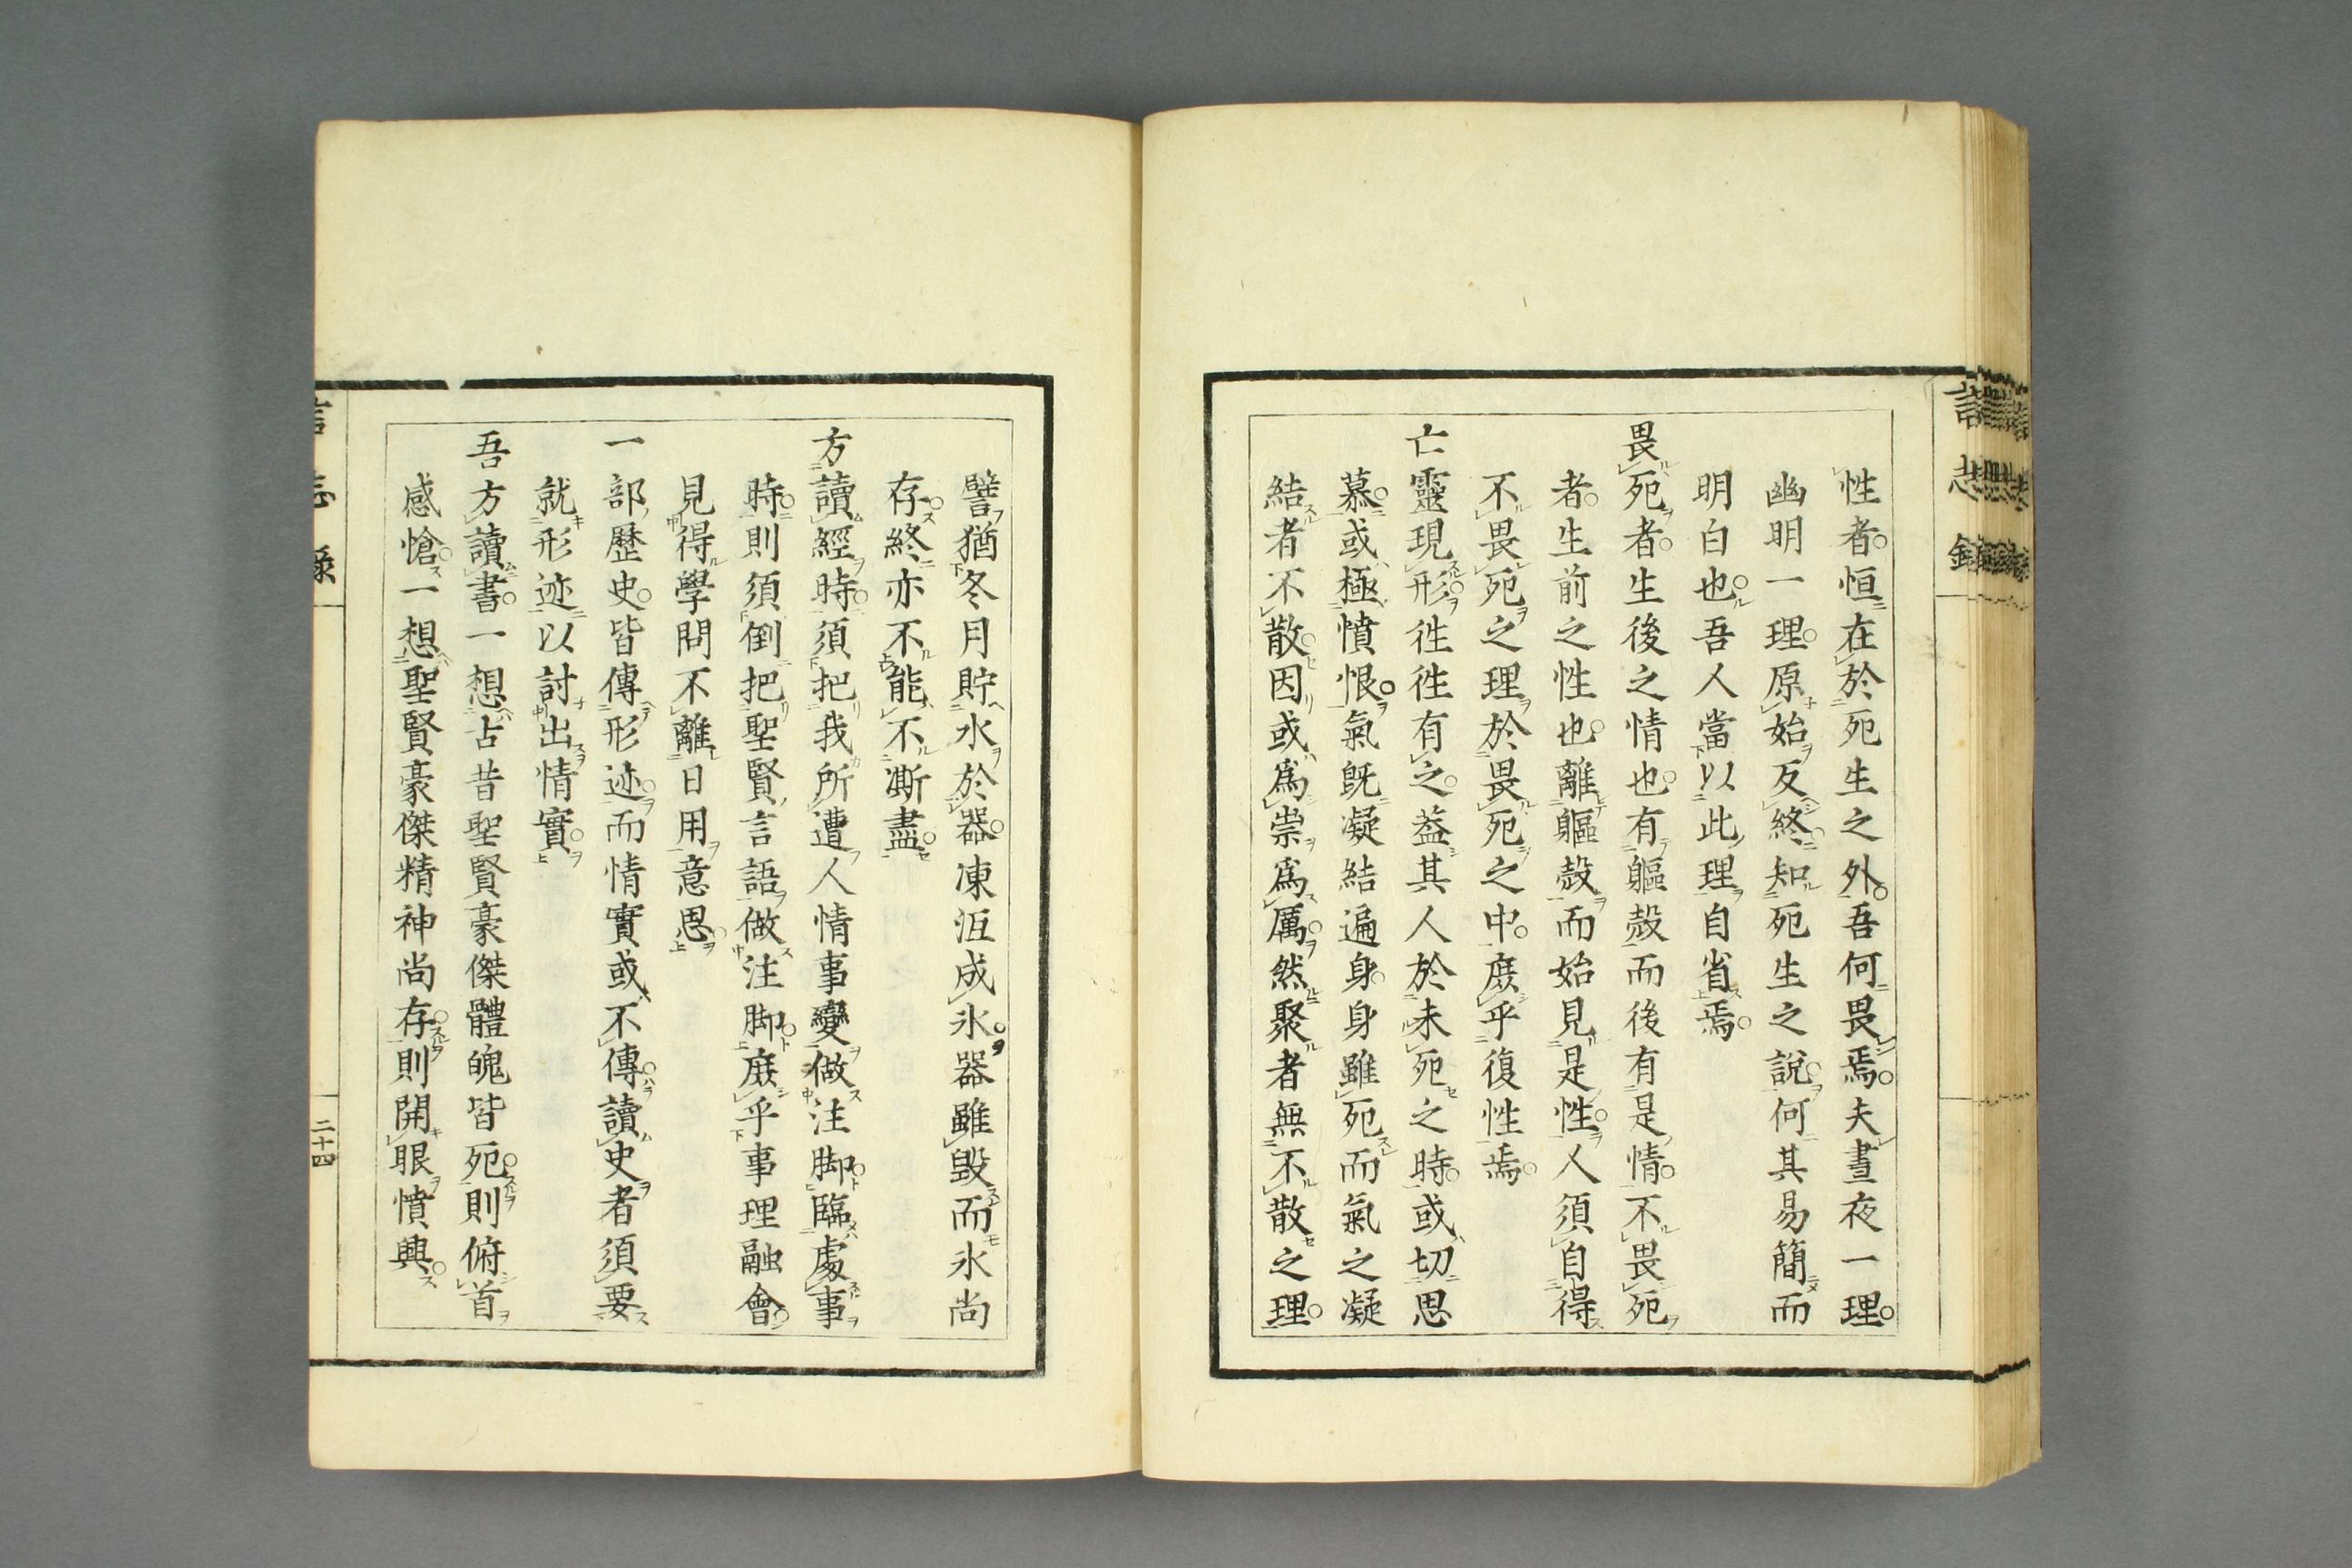 言志錄
性者恒在於死生之外吾何畏焉夫晝夜一理
幽明一理原始反終知死生之說何其易簡而
明白也吾人當以此理自省焉
畏死者生後之情也有軀殼而後有是情不畏死
者生前之性也離軀殼而始見是性人須自得
不畏死之理於畏死之中庶乎復性焉
亡靈現形徃徃有之葢其人於未死之時或切思
慕或極憤恨氣既凝結遍身身雖死而氣之凝
結者不散因或爲祟爲厲然聚者無不散之理
譬猶冬月貯水於器凍沍成氷器雖毀而氷尚
存終亦不能不澌盡
方讀經時須把我所遭人情事變做注脚臨處事
時則須倒把聖賢言語做注脚庶乎事理融會
見得學問不離日用意思
一部歷史皆傳形迹而情實或不傳讀史者須要
就形迹以討出情實
吾方讀書一想古昔聖賢豪傑體魄皆死則俯首
感愴一想聖賢豪傑精神尚存則開眼憤興
言志錄
二十四